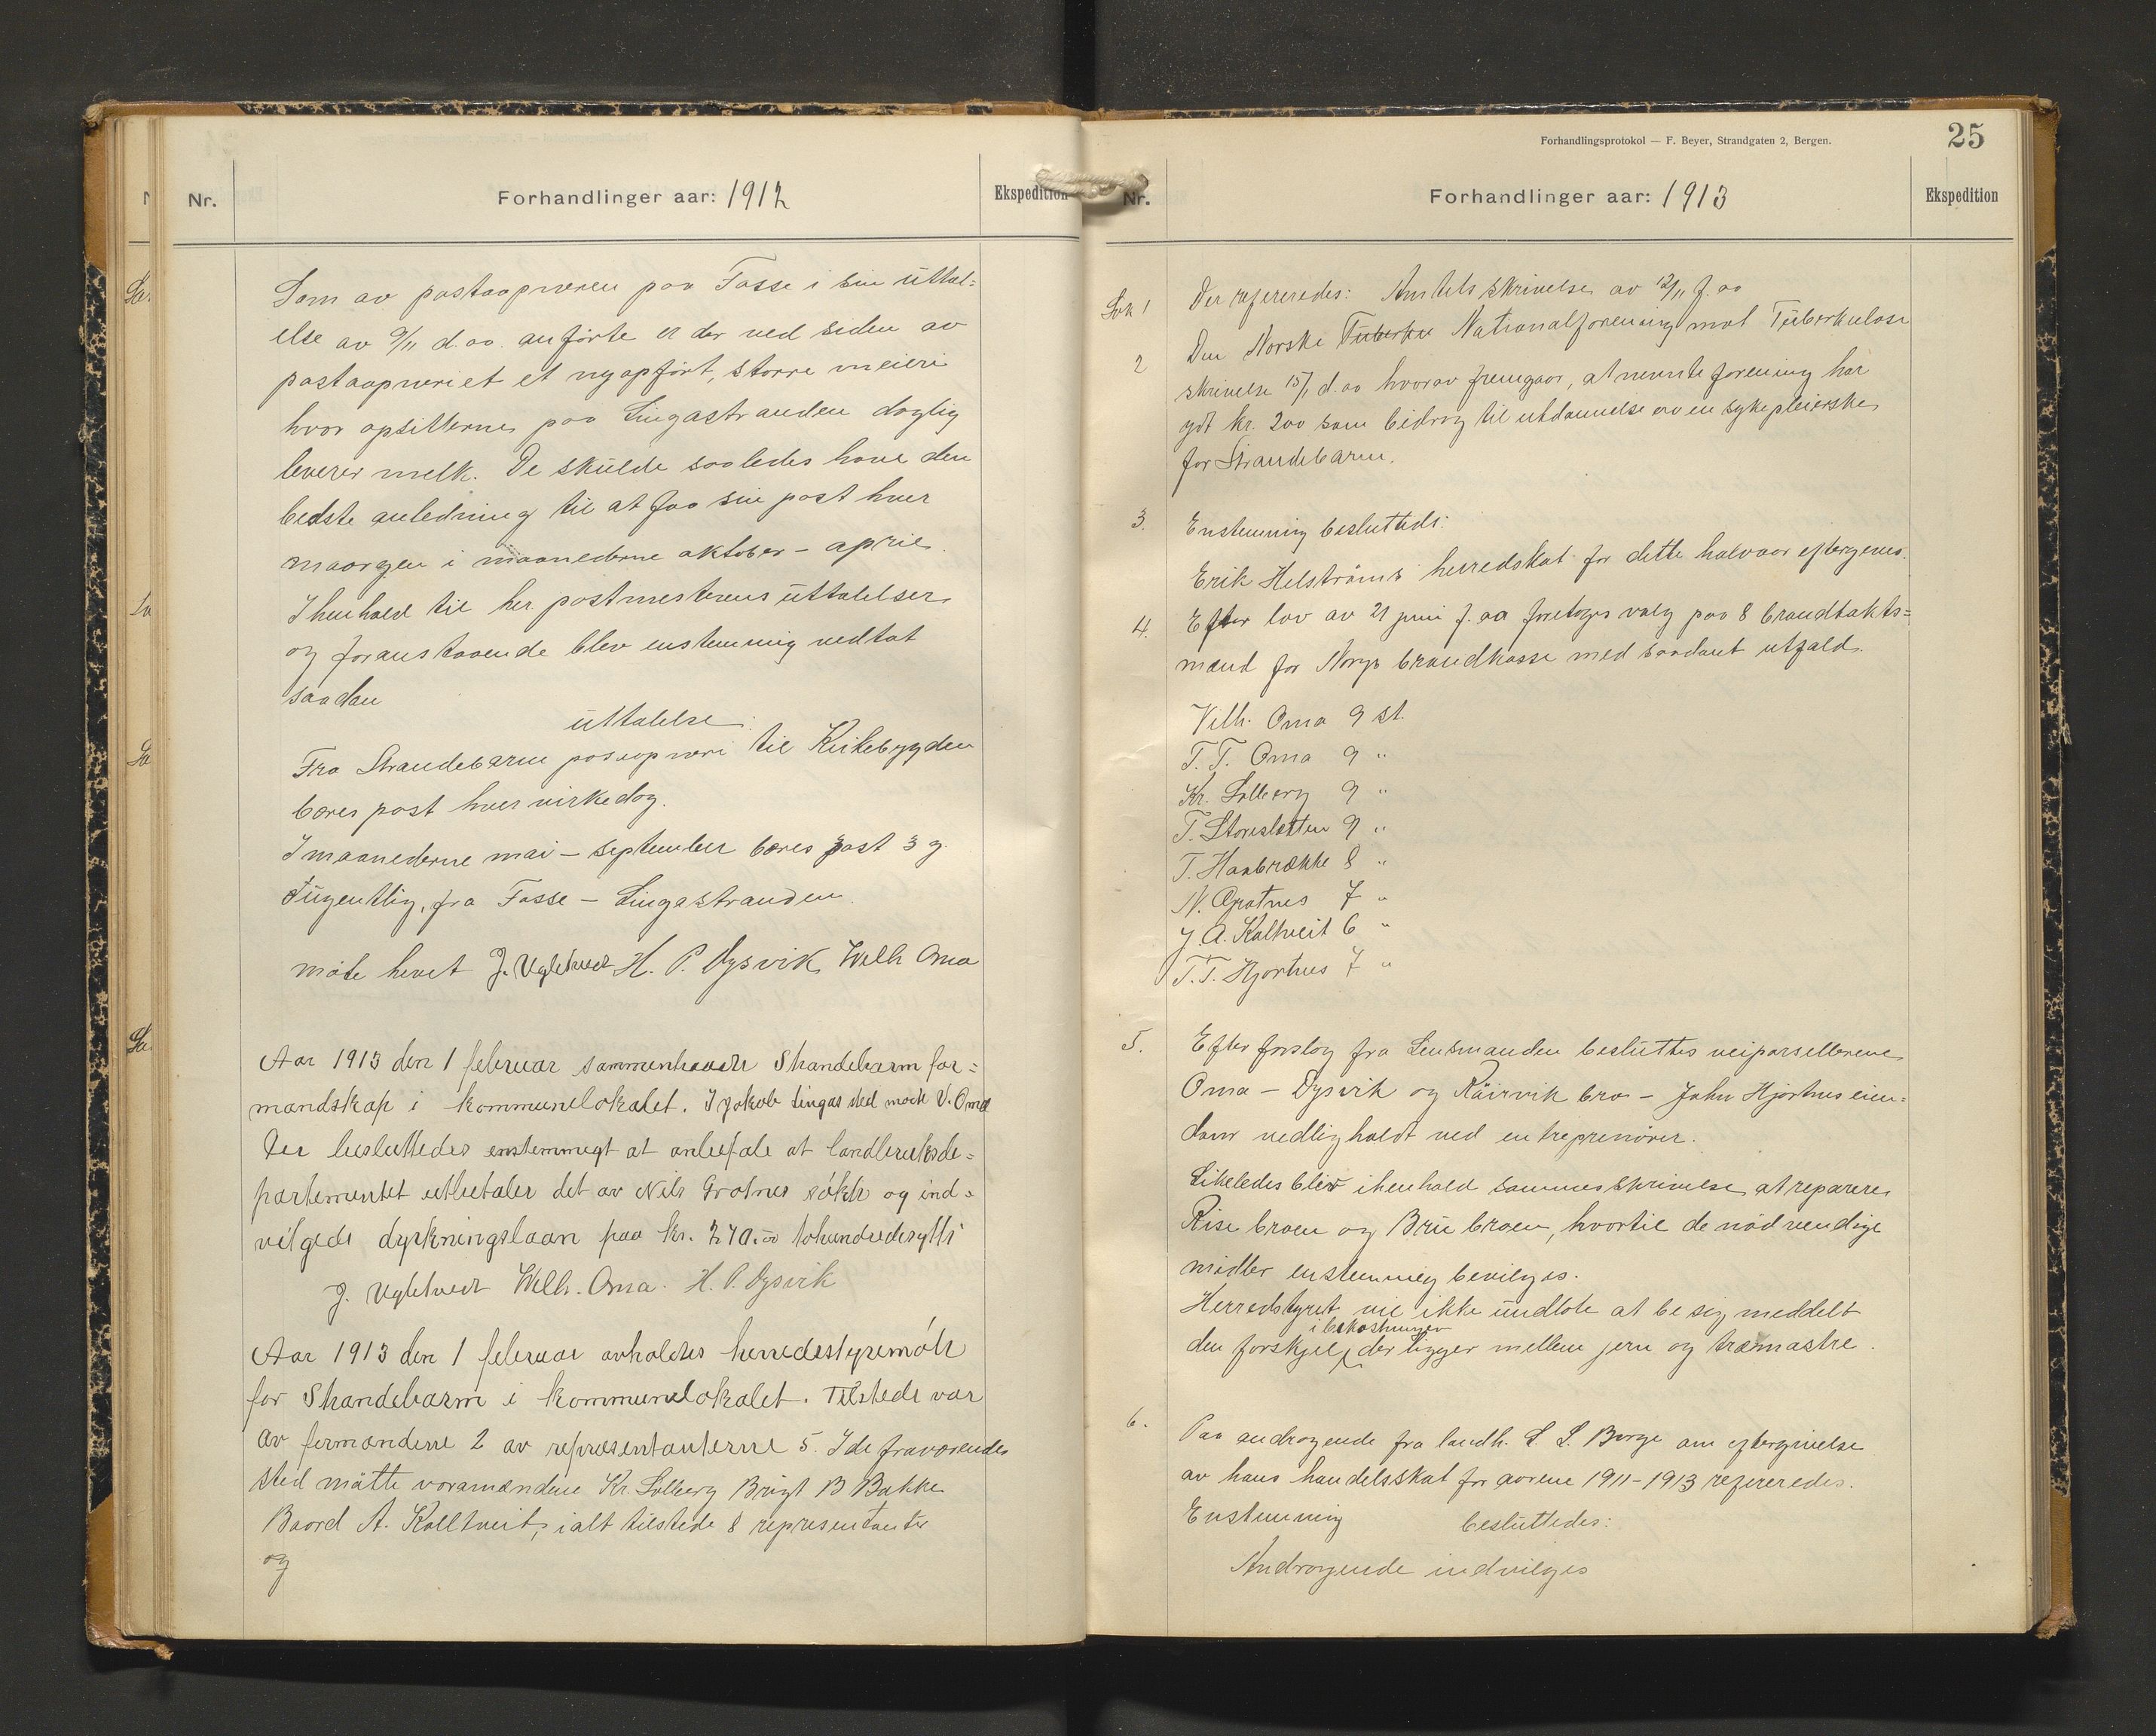 Nr.
Forhandlinger aar: 1912
Ekspedition
Som av postaapneren paa Fosse i sin üttal=
else av 9/11 d. aa. anførte er der ved siden av
postaapneriet et nyopført, større meieri
hvor opsitterne paa Lingastranden daglig
leverer melk. De skülde saaledes have den
bedste anledning til at faa sin post hver
maargen i maanederne oktober - april.
I henhold til hr. postmesterens üttalelser
og foranstaaende blev enstemmig vedtat
saadan
üttalelse:
Fra Strandebarm posaapneri til Kirkebygden
bæres post hver virkedag.
I maanederne mai - september bæres post 3 g.
ügentlig, fra Fosse - Lingastranden.
møte hevet J. Ugletveit H. P. Dysvik Wilh Oma
Aar 1913 den 1 februar sammentraadte Strandebarm for=
mandskap i kommunelokalet. I Jakob Lingas sted møtte V. Oma
Der besluttedes enstemmigt at anbefale at landbruksde=
partementet utbetaler det av Nils Grotnes søkte og ind=
vilgede dyrkningslaan paa kr. 270.00 tohundredesytti
J. Ugletveit Wilh. Oma. H. P. Dysvik
Aar 1913 den 1 februar avholdtes herredsstyremøte
for Strandebarm i kommunelokalet. Tilstede var
av formændene 2 av repræsentanterne 5. I de fraværendes
sted møtte varamændene Kr. Solberg Brigt B Bakke
Baard A. Kalltveit, ialt tilstede 8 representanter
og
Forhandlingsprotokol — F. Beyer, Strandgaten 2, Bergen.
25
Nr.
Forhandlinger aar: 1913
Ekspedition
Sak 1 Der refereredes: Amtets skrivelse av 12/11 f. aa
2 Den Norske Tüberku Nationalforening mot Tüberkulose
skrivelse 15/1 d. aa hvorav fremgaar, at nevnte forening har
ydt kr. 200 som bidrag til utdannelse av en sykepleierske
for Strandebarm.
3. Enstemmig besluttedes:
Erik Helströms herredskat for dette halvaar eftergives.
4. Efter lov av 21 juni f. aa foretoges valg paa 8 brandtakts=
mænd for Norges brandkasse med saadant utfald.
Vilh. Oma 9 st.
T. T. Oma 9 "
Kr. Solberg 9 "
T. Storesletten 9 "
T. Haabrække 8 "
N. Grotnes 7 "
J. A. Kaltveit 6 "
T. T. Hjortnes 7 "
5. Efter forslag fra Lensmanden besluttes veiparsellerne
Oma - Dysvik og Räirvik bro - John Hjortnes eien=
dom vedligholdt ved entreprenører.
Likeledes blev i henhold sammes skrivelse at reparere
Rise broen og Brü broen, hvortil de nødvendige
midler enstemmig bevilges.
Herredstyret vil ikke ündlate at be sig meddelt
i bekostninger
den forskjel der ligger mellem jern og træmastre.
6. Paa andragende fra landh. L. L. Berge om eftergivelse
av hans handelsskat for aarene 1911-1913 refereredes.
Enstemmig besluttedes:
Andragende indvilges